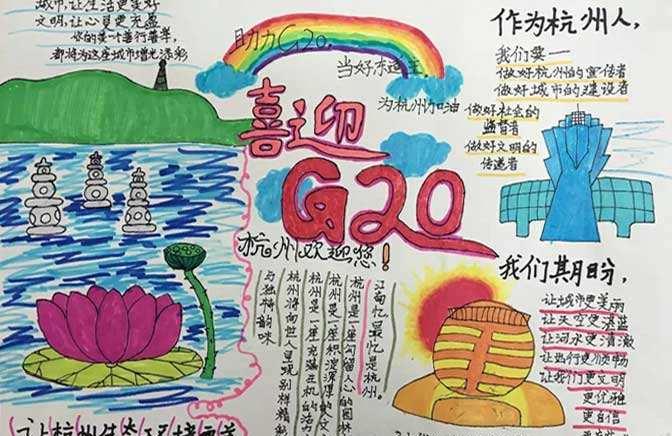 城市,让生活更美好
文明,让心灵更充盈
你的美一个善行善举,
都将为这座城市增光添彩
助力G20,
当好东道主,
为杭州加油
喜迎
G20
杭州欢迎您!
作为杭州人,
我们要一
做好杭州的宣传者
做好城市的建设者
做好社会的
监督者
做好文明的
传递者
江南忆,最忆是杭州。
杭州是一座勾留人心的园林
杭州是一座积淀深厚的文
杭州是一座充满生机的活力
杭州将向世人呈现别样精彩
与独特韵味
我们期盼,
让城市更美丽
让天空更湛蓝
让河水更清澈
让出行更顺畅
让我们更文明
更优雅
更自信
让杭州生态环境更美